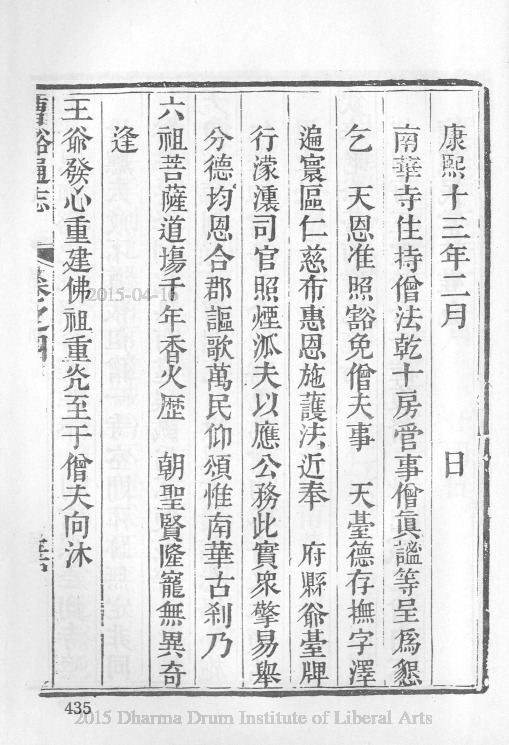 康熙十三年二月　　　日
南華寺住持僧法乾十房管事僧眞謐等呈爲懇
乞　天恩准照豁免僧夫事　天臺德存撫字澤
遍寰區仁慈布惠恩施護法近奉　府縣爺臺牌
行濛瀼司官照煙派夫以應公務此實衆擎易舉
分德均恩合郡謳歌萬民仰頌惟南華古刹乃
六祖菩薩道塲千年香火歷　朝聖賢隆寵無異奇
逢
王爺發心重建佛祖重光至于僧夫向沐
曹谿通志
卷之四
2015-04-16
435
2015 Dharma Drum Institute of Liberal Arts